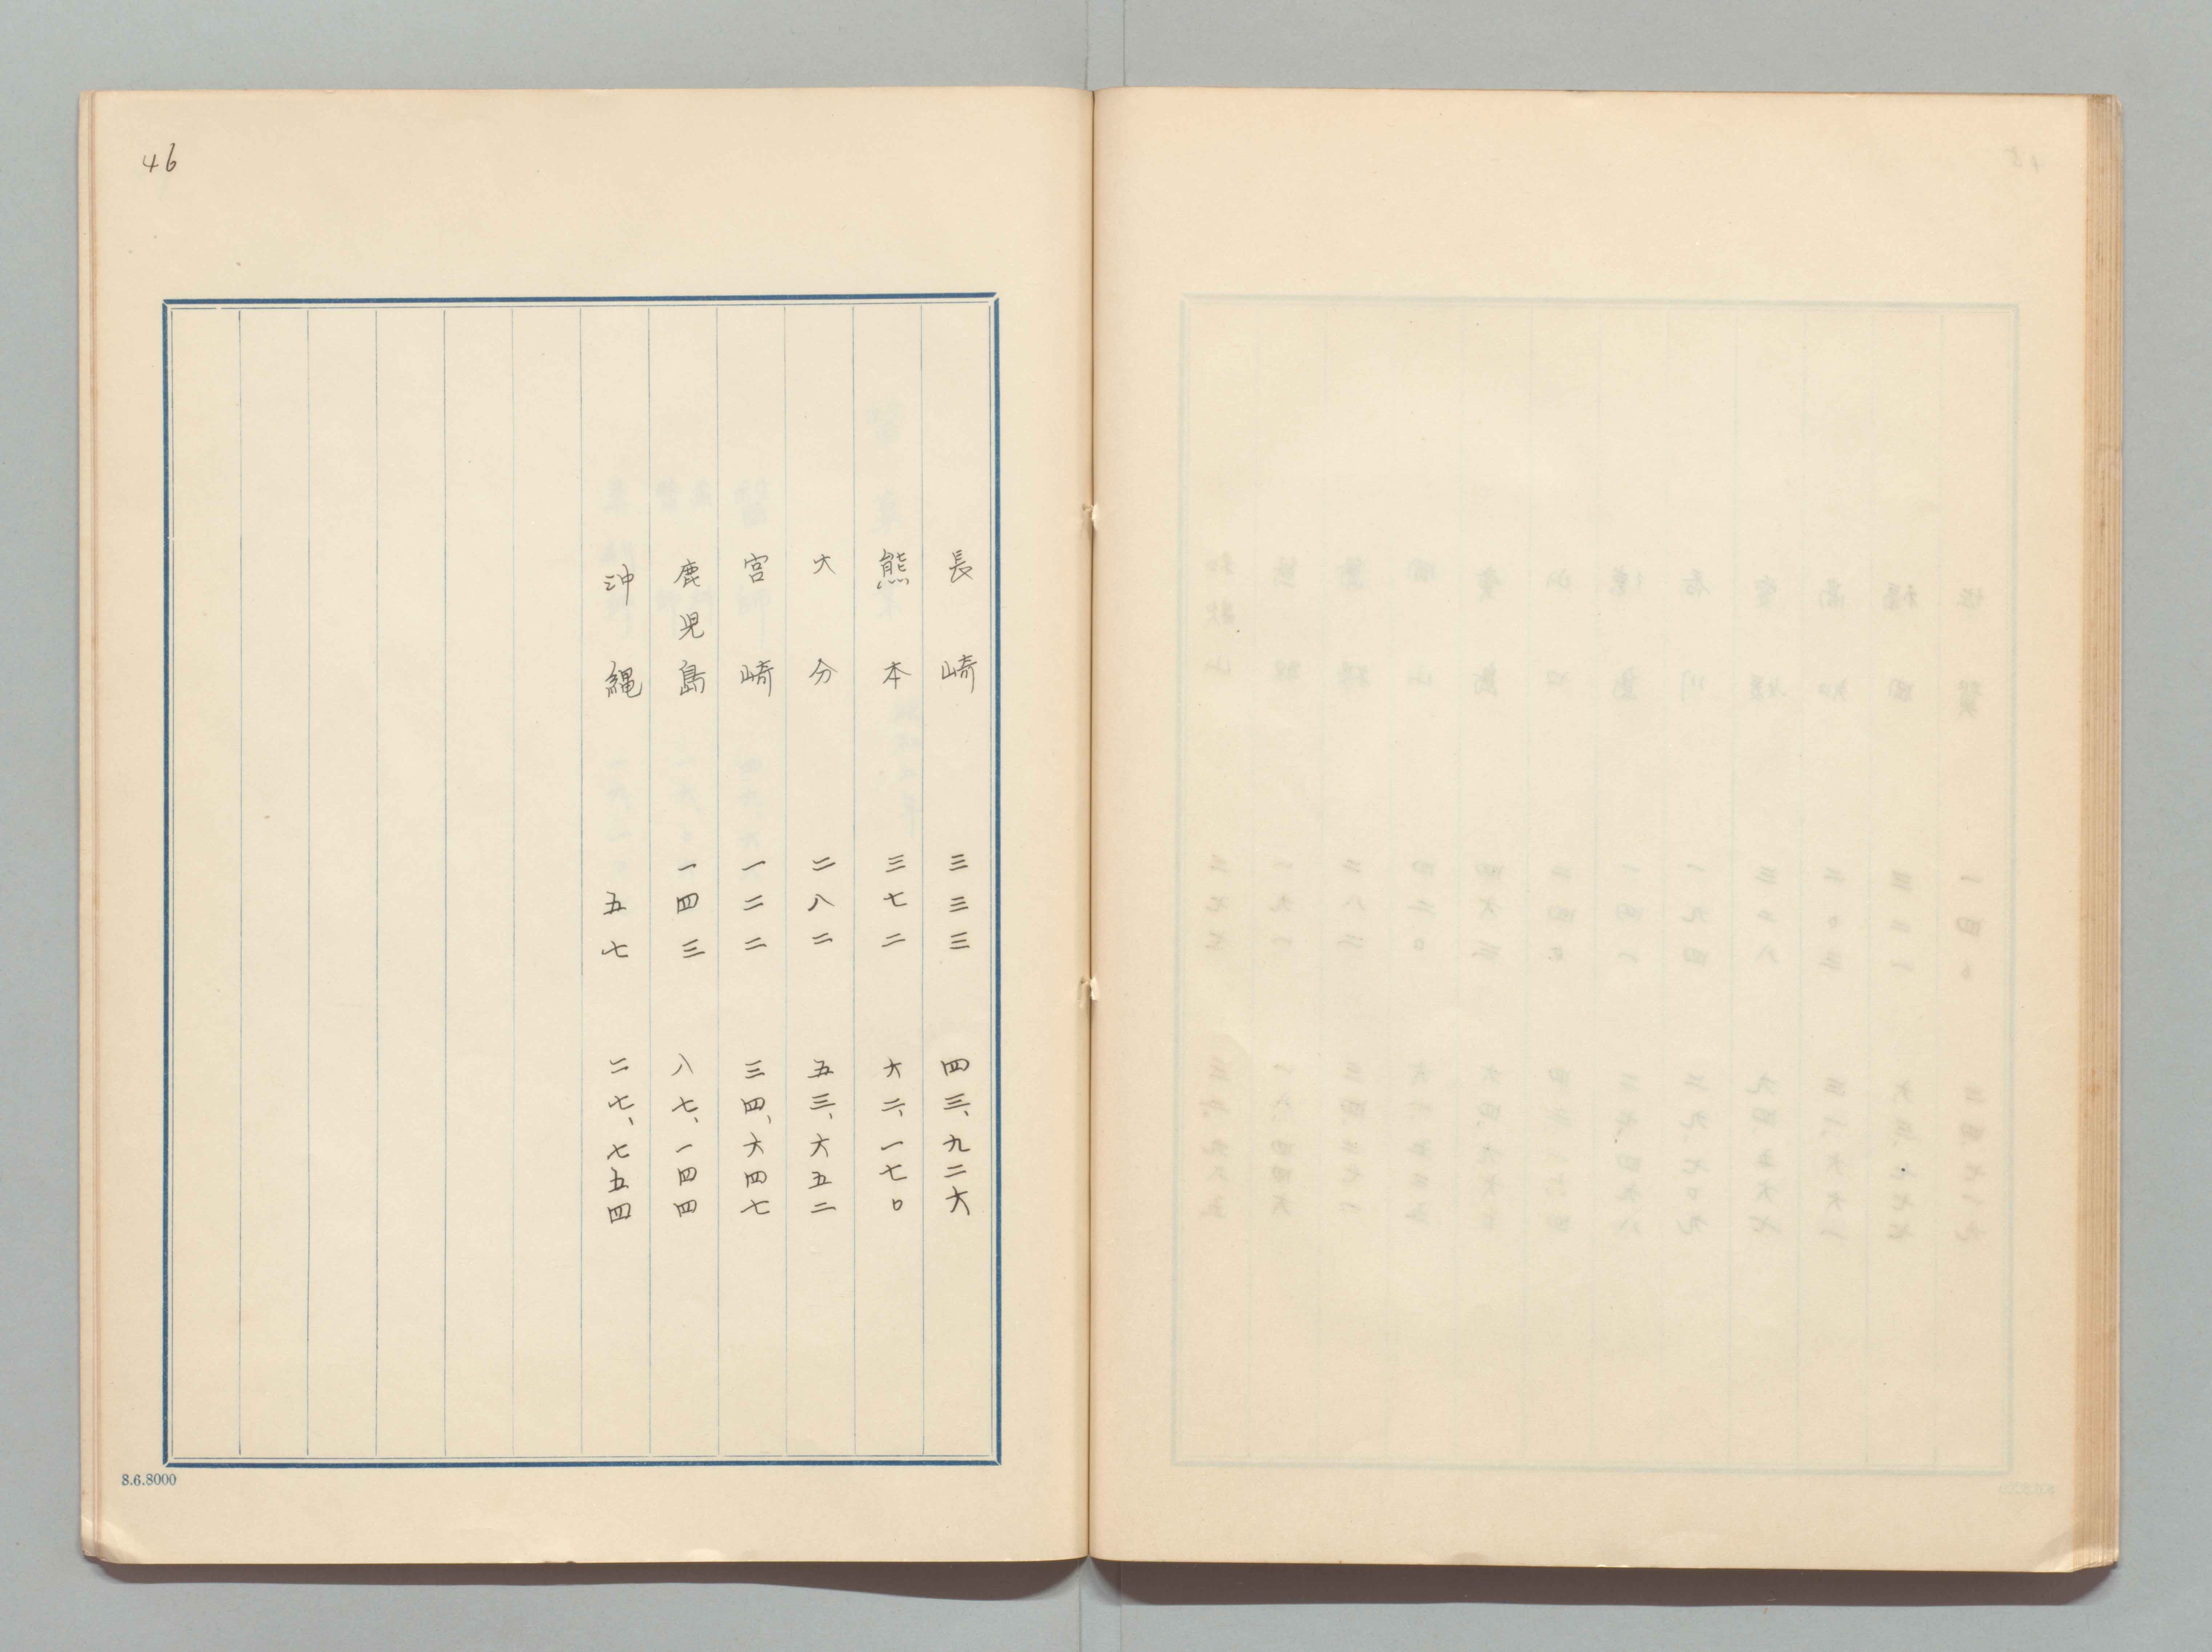 46
長崎 三三三 四三、九二六
熊本 三七二 六二、一七〇
大分 二八二 五三、六五二
宮崎 一二二 三四、六四七
鹿児島 一四三 八七、一四四
沖縄 五七 二七、七五四
8.6.8000